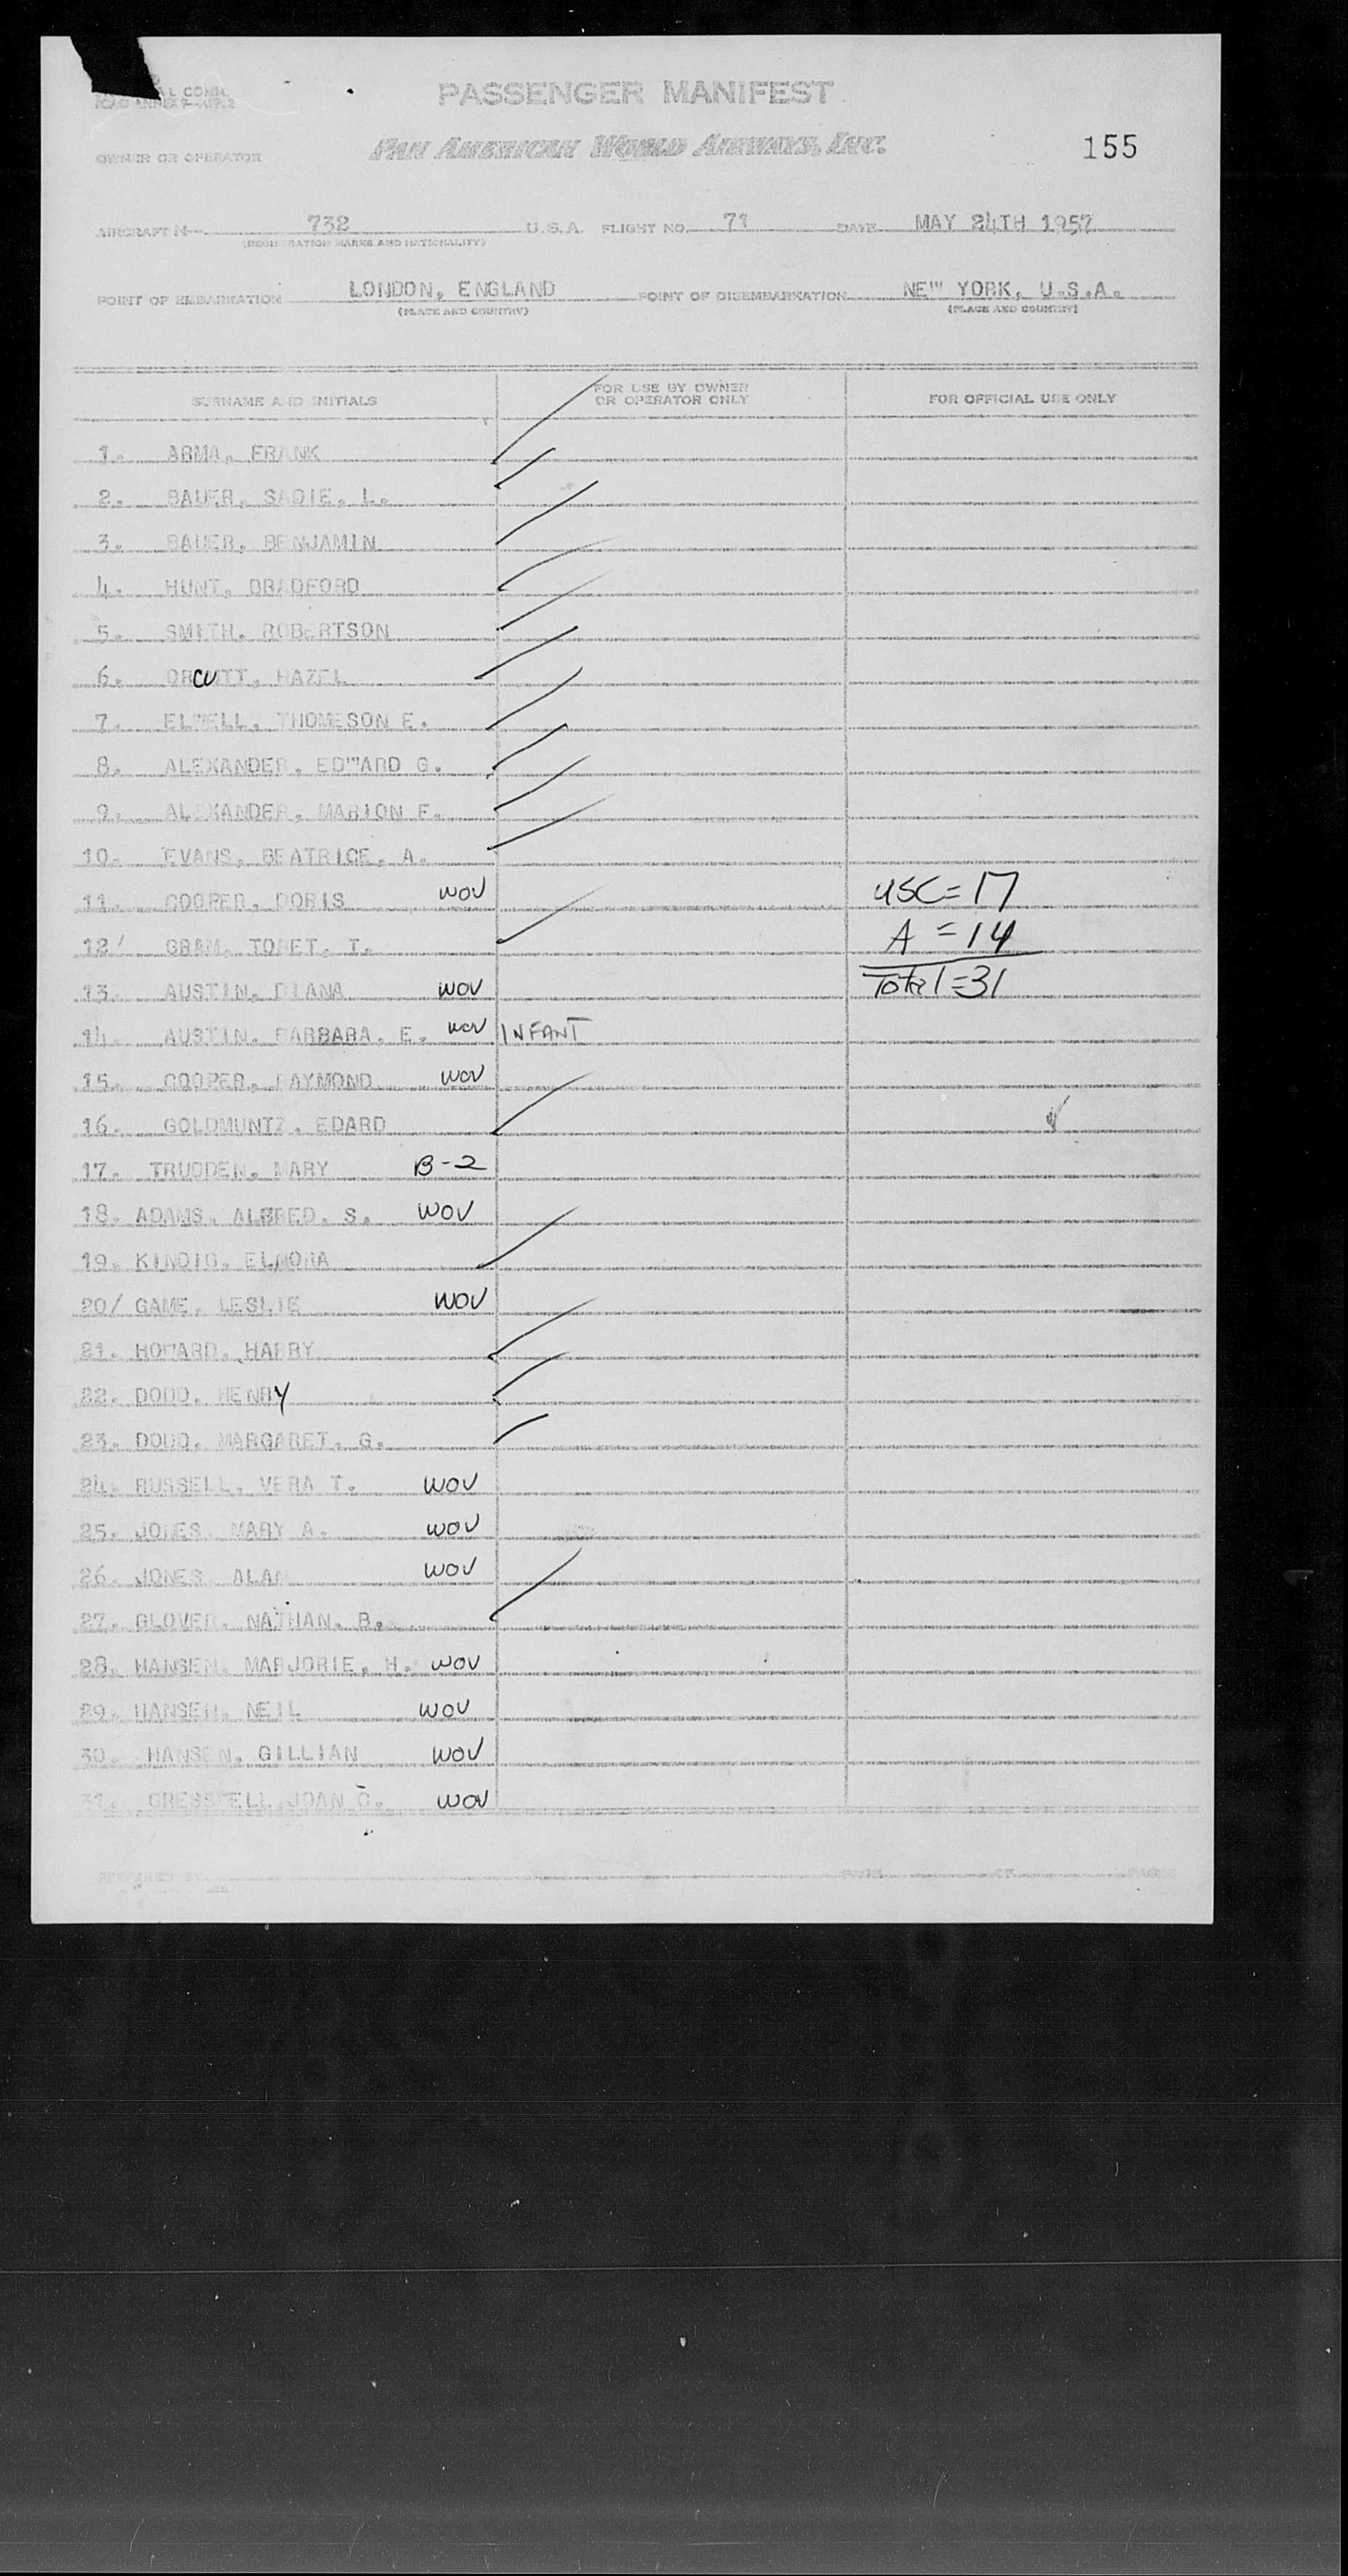 PASSENGER MANIFEST
PAN AMERICAN WORLD AIRWAYS, INC.
155
OWNER OR OPERATOR
AIRCRAFT N 732 U.S.A. FLIGHT NO. 71 DATE MAY 24TH 1957
(REGISTRATION MARKS AND NATIONALITY)
POINT OF EMBARKATION LONDON, ENGLAND POINT OF DISEMBARKATION NEW YORK, U.S.A.
(PLACE AND COUNTRY) (PLACE AND COUNTRY)
SURNAME AND INITIALS FOR USE BY OWNER OR OPERATOR ONLY FOR OFFICIAL USE ONLY
1. ARMA, FRANK
2. BAUER, SADIE, L.
3. BAUER, BENJAMIN
4. HUNT, BRADFORD
5. SMITH, ROBERTSON
6. ORCUTT, HAZEL
7. ELWELL, THOMESON E.
8. ALEXANDER, EDWARD G.
9. ALEXANDER, MARION F.
10. EVANS, BEATRICE, A.
11. COOPER, DORIS WOV USC=17
12/ GRAM, TORET, I. A =14
13. AUSTIN, DIANA WOV Total=31
14. AUSTIN, BARBARA, E. WOV INFANT
15. COOPER, RAYMOND WOV
16. GOLDMUNTZ, EDARD
17. TRUDDEN, MARY B-2
18. ADAMS, ALFRED, S. WOV
19. KINDIG, ELNORA
20/ GAME, LESLIE WOV
21. HOWARD, HARRY
22. DODD, HENRY
23. DODD, MARGARET, G.
24. RUSSELL, VERA T. WOV
25. JONES, MARY A. WOV
26. JONES, ALAN WOV
27. GLOVER, NATHAN, B.
28. HANSEN, MARJORIE, H. WOV
29. HANSEN, NEIL WOV
30. HANSEN, GILLIAN WOV
31. CRESSWELL, JOAN WOV